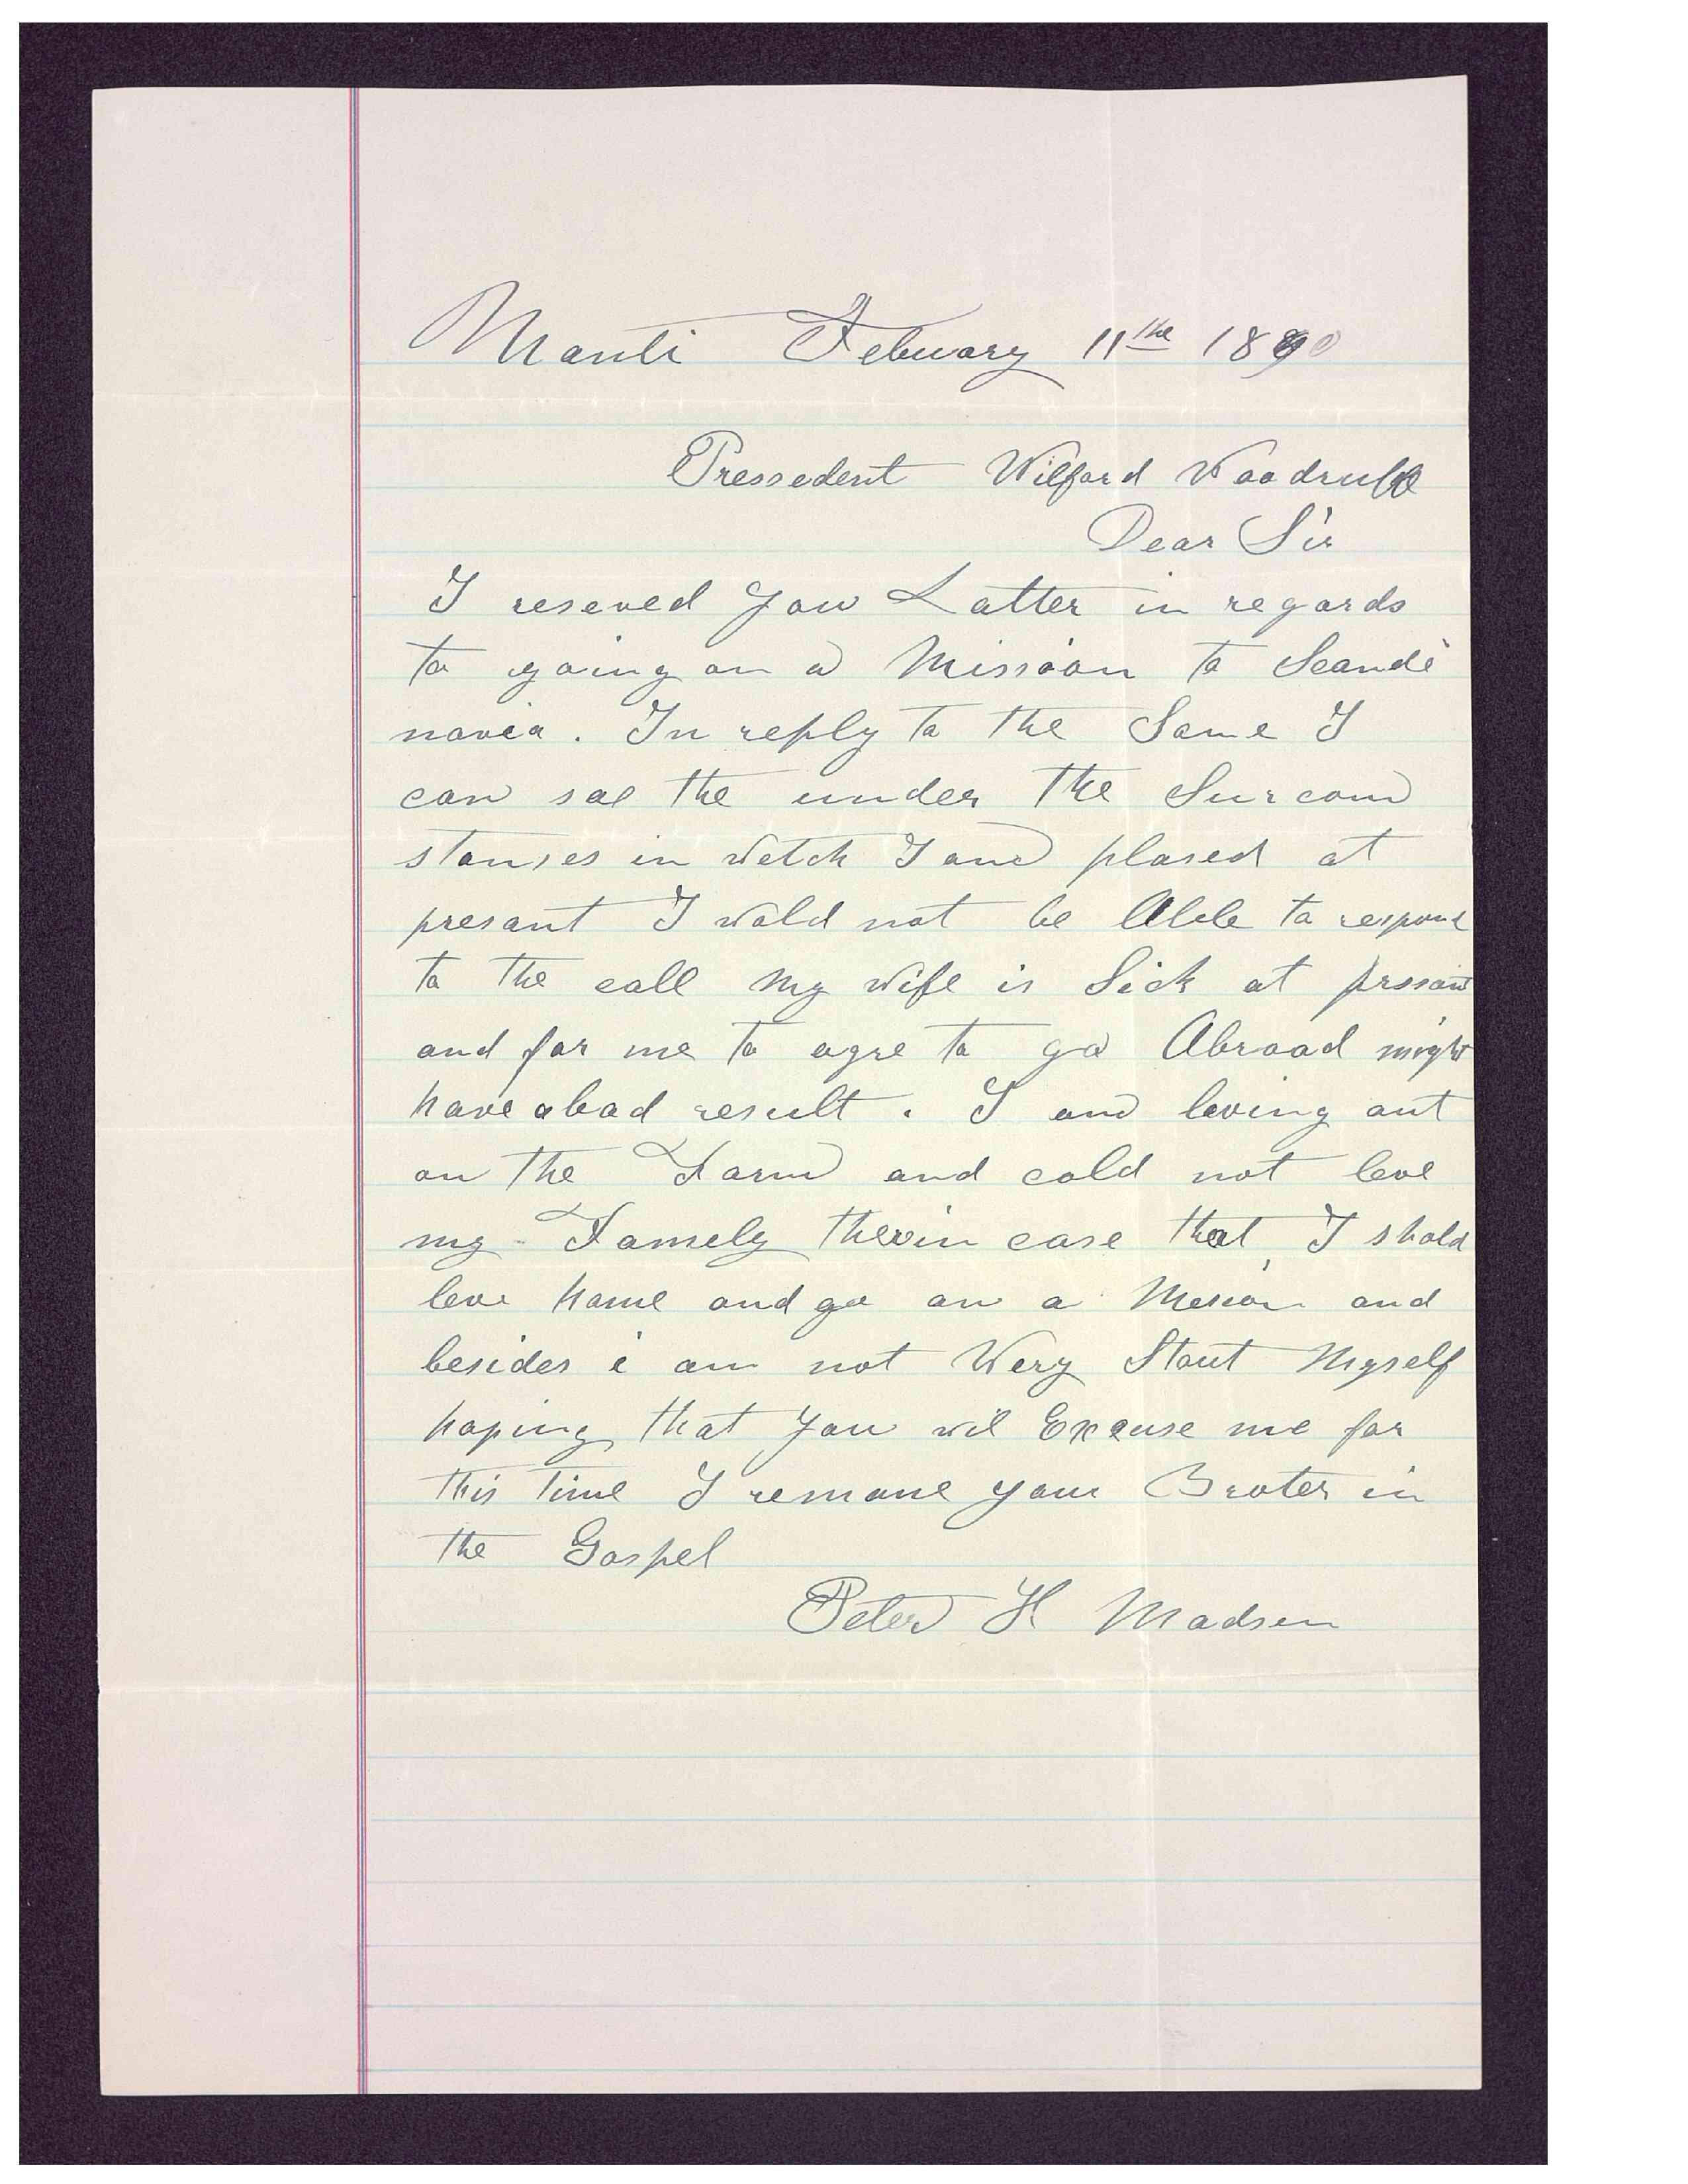 Manti Febuary 11the 1890
Pressedent Wilford Woodruff
Dear Sir
I reseved you Latter in regards
to going on a Mission to Scandi
navia. In reply to the Same I
can sae the under the Surcom
stanses in witch I am plased at
presant I wold not be Able to respond
to the call my wife is Sick at prssant
and for me to agre to go Abroad might
have a bad result. I am leving out
on the Farm and cold not leve
my Famely therin case that I shold
leve home and go on a Mesion and
besides i am not Wery Stout Myself
hoping that you wil Excuse me for
this time I remane your Broter in
the Gospel
Peter H Madsen